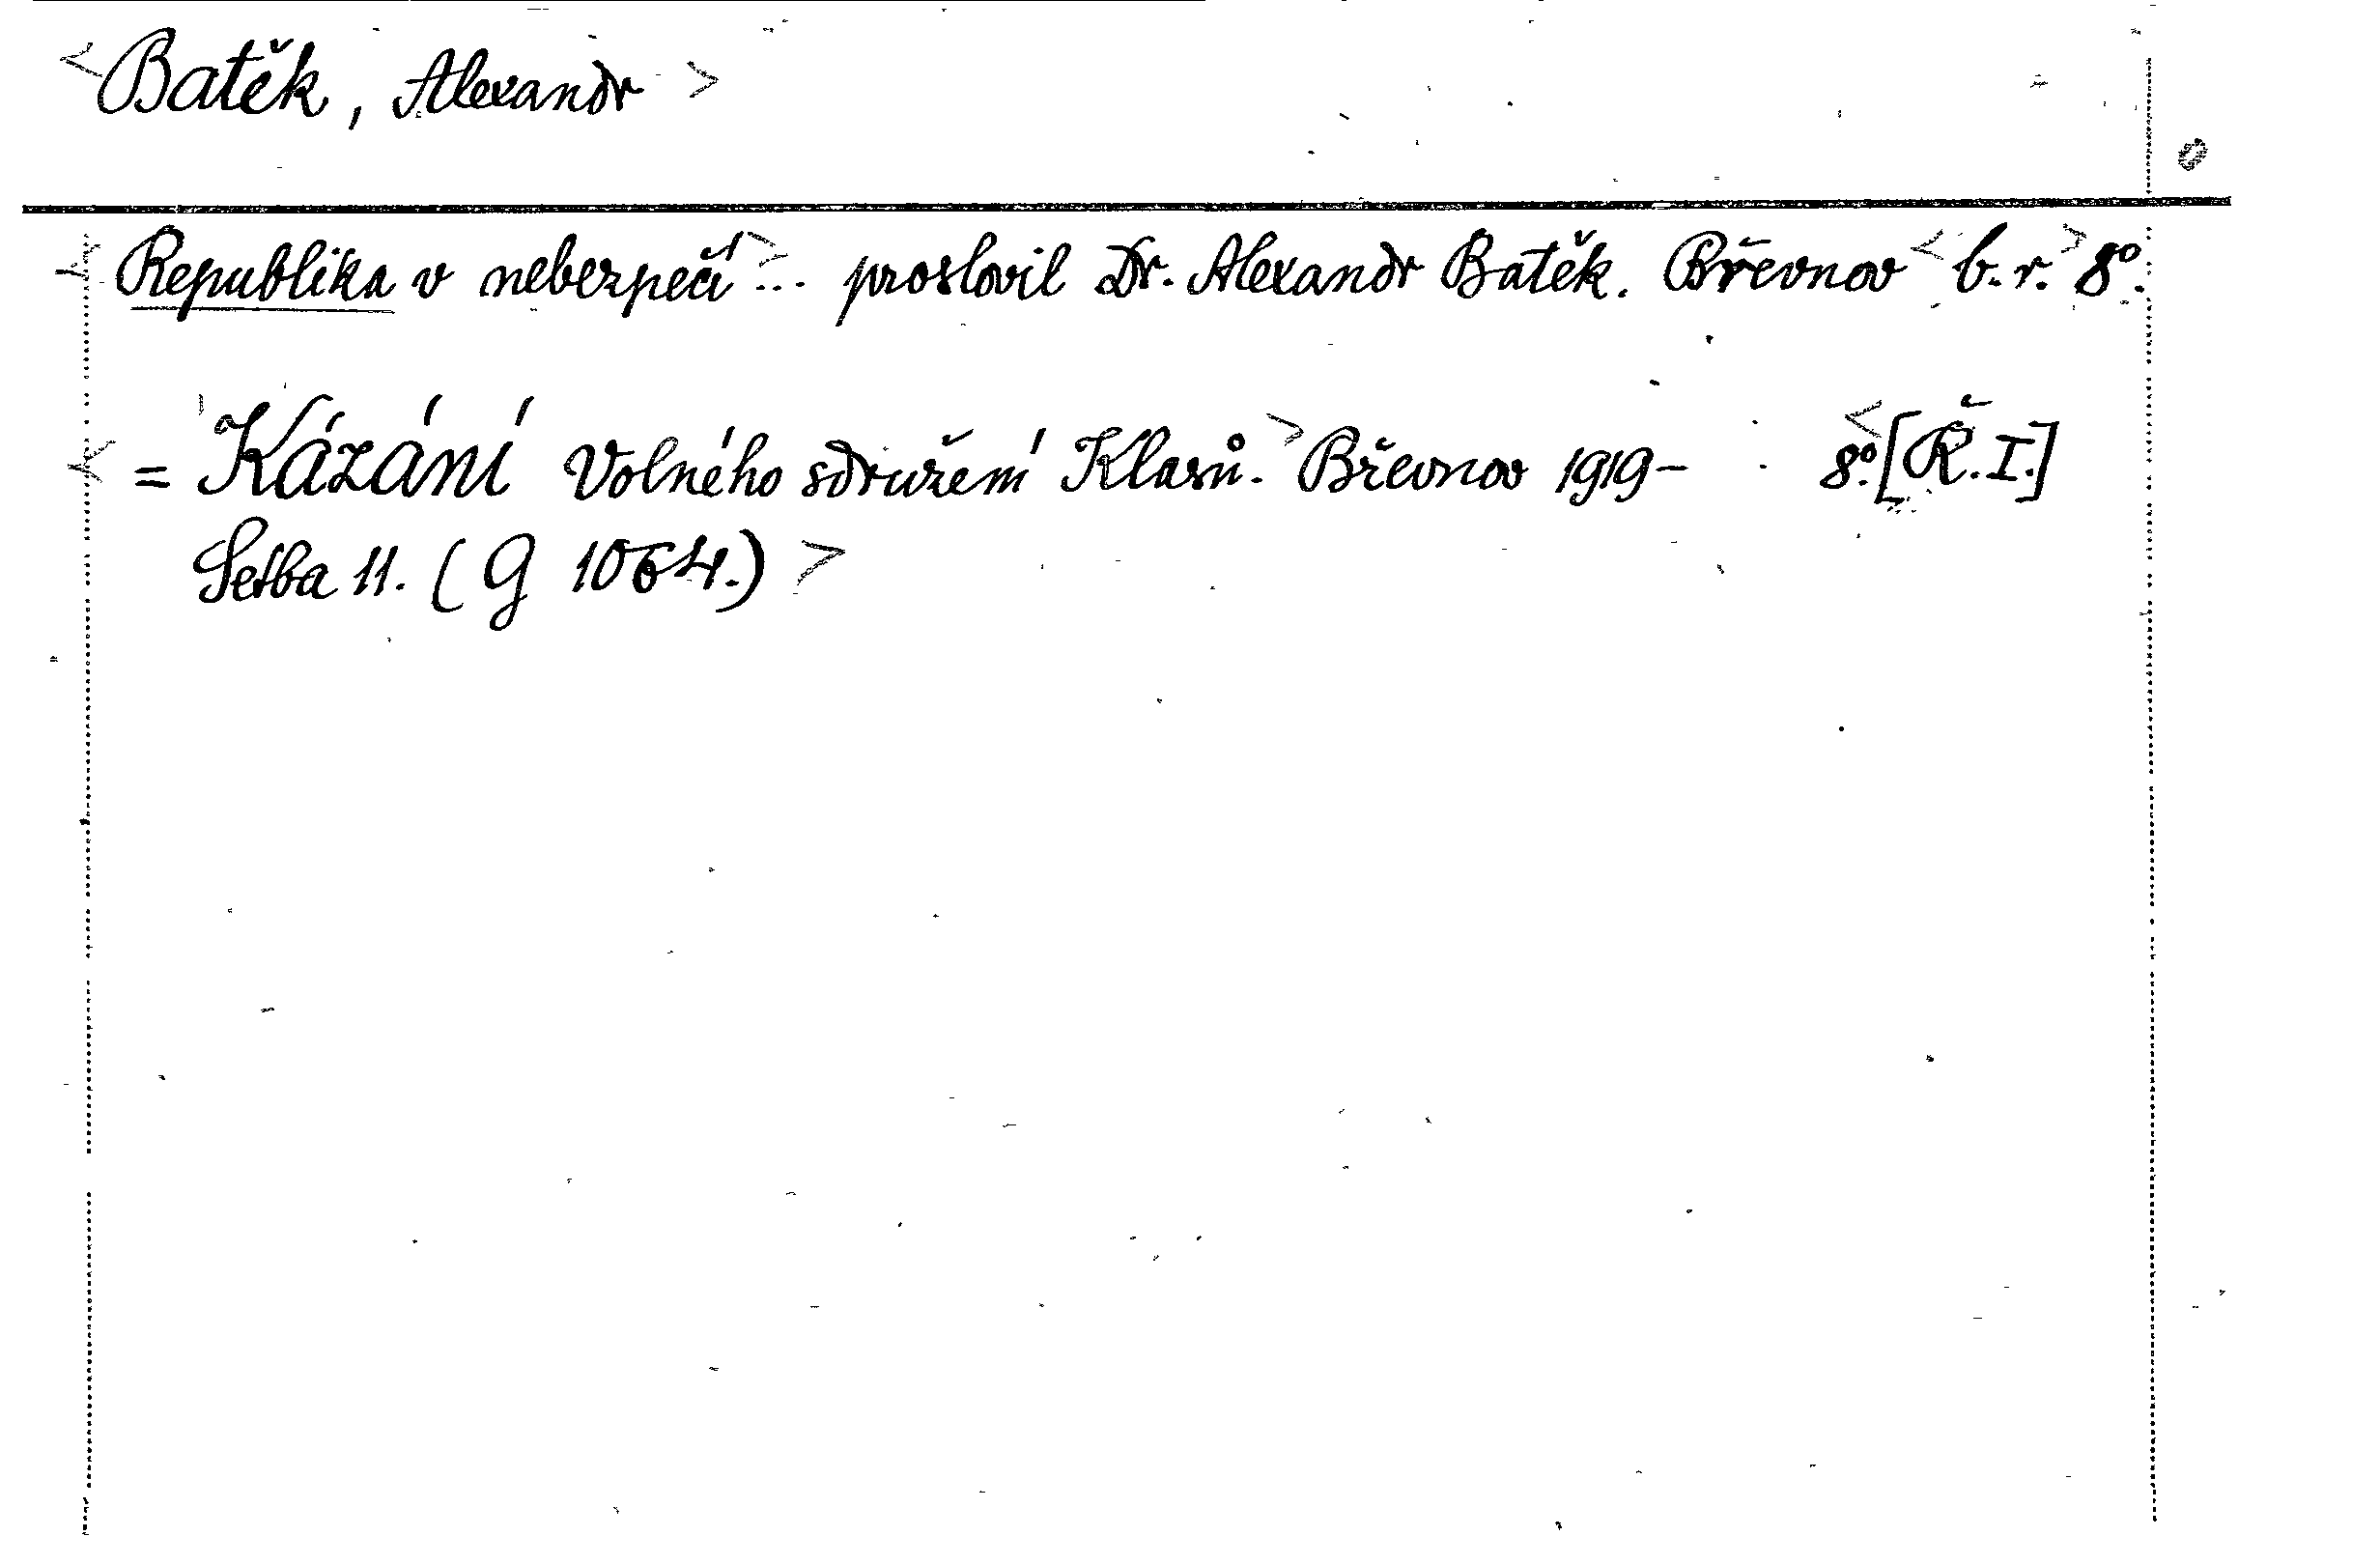 <Batěk, Alexandr>
<Republika v nebezpečí>... proslovil Dr. Alexandr Batěk. Břevnov <b. r.> 8°.
<= Kázání Volného sdružení Klasů.> Břevnov 1919- 8°. <[Ř. I.]
Setba 11. (G 1064.)>